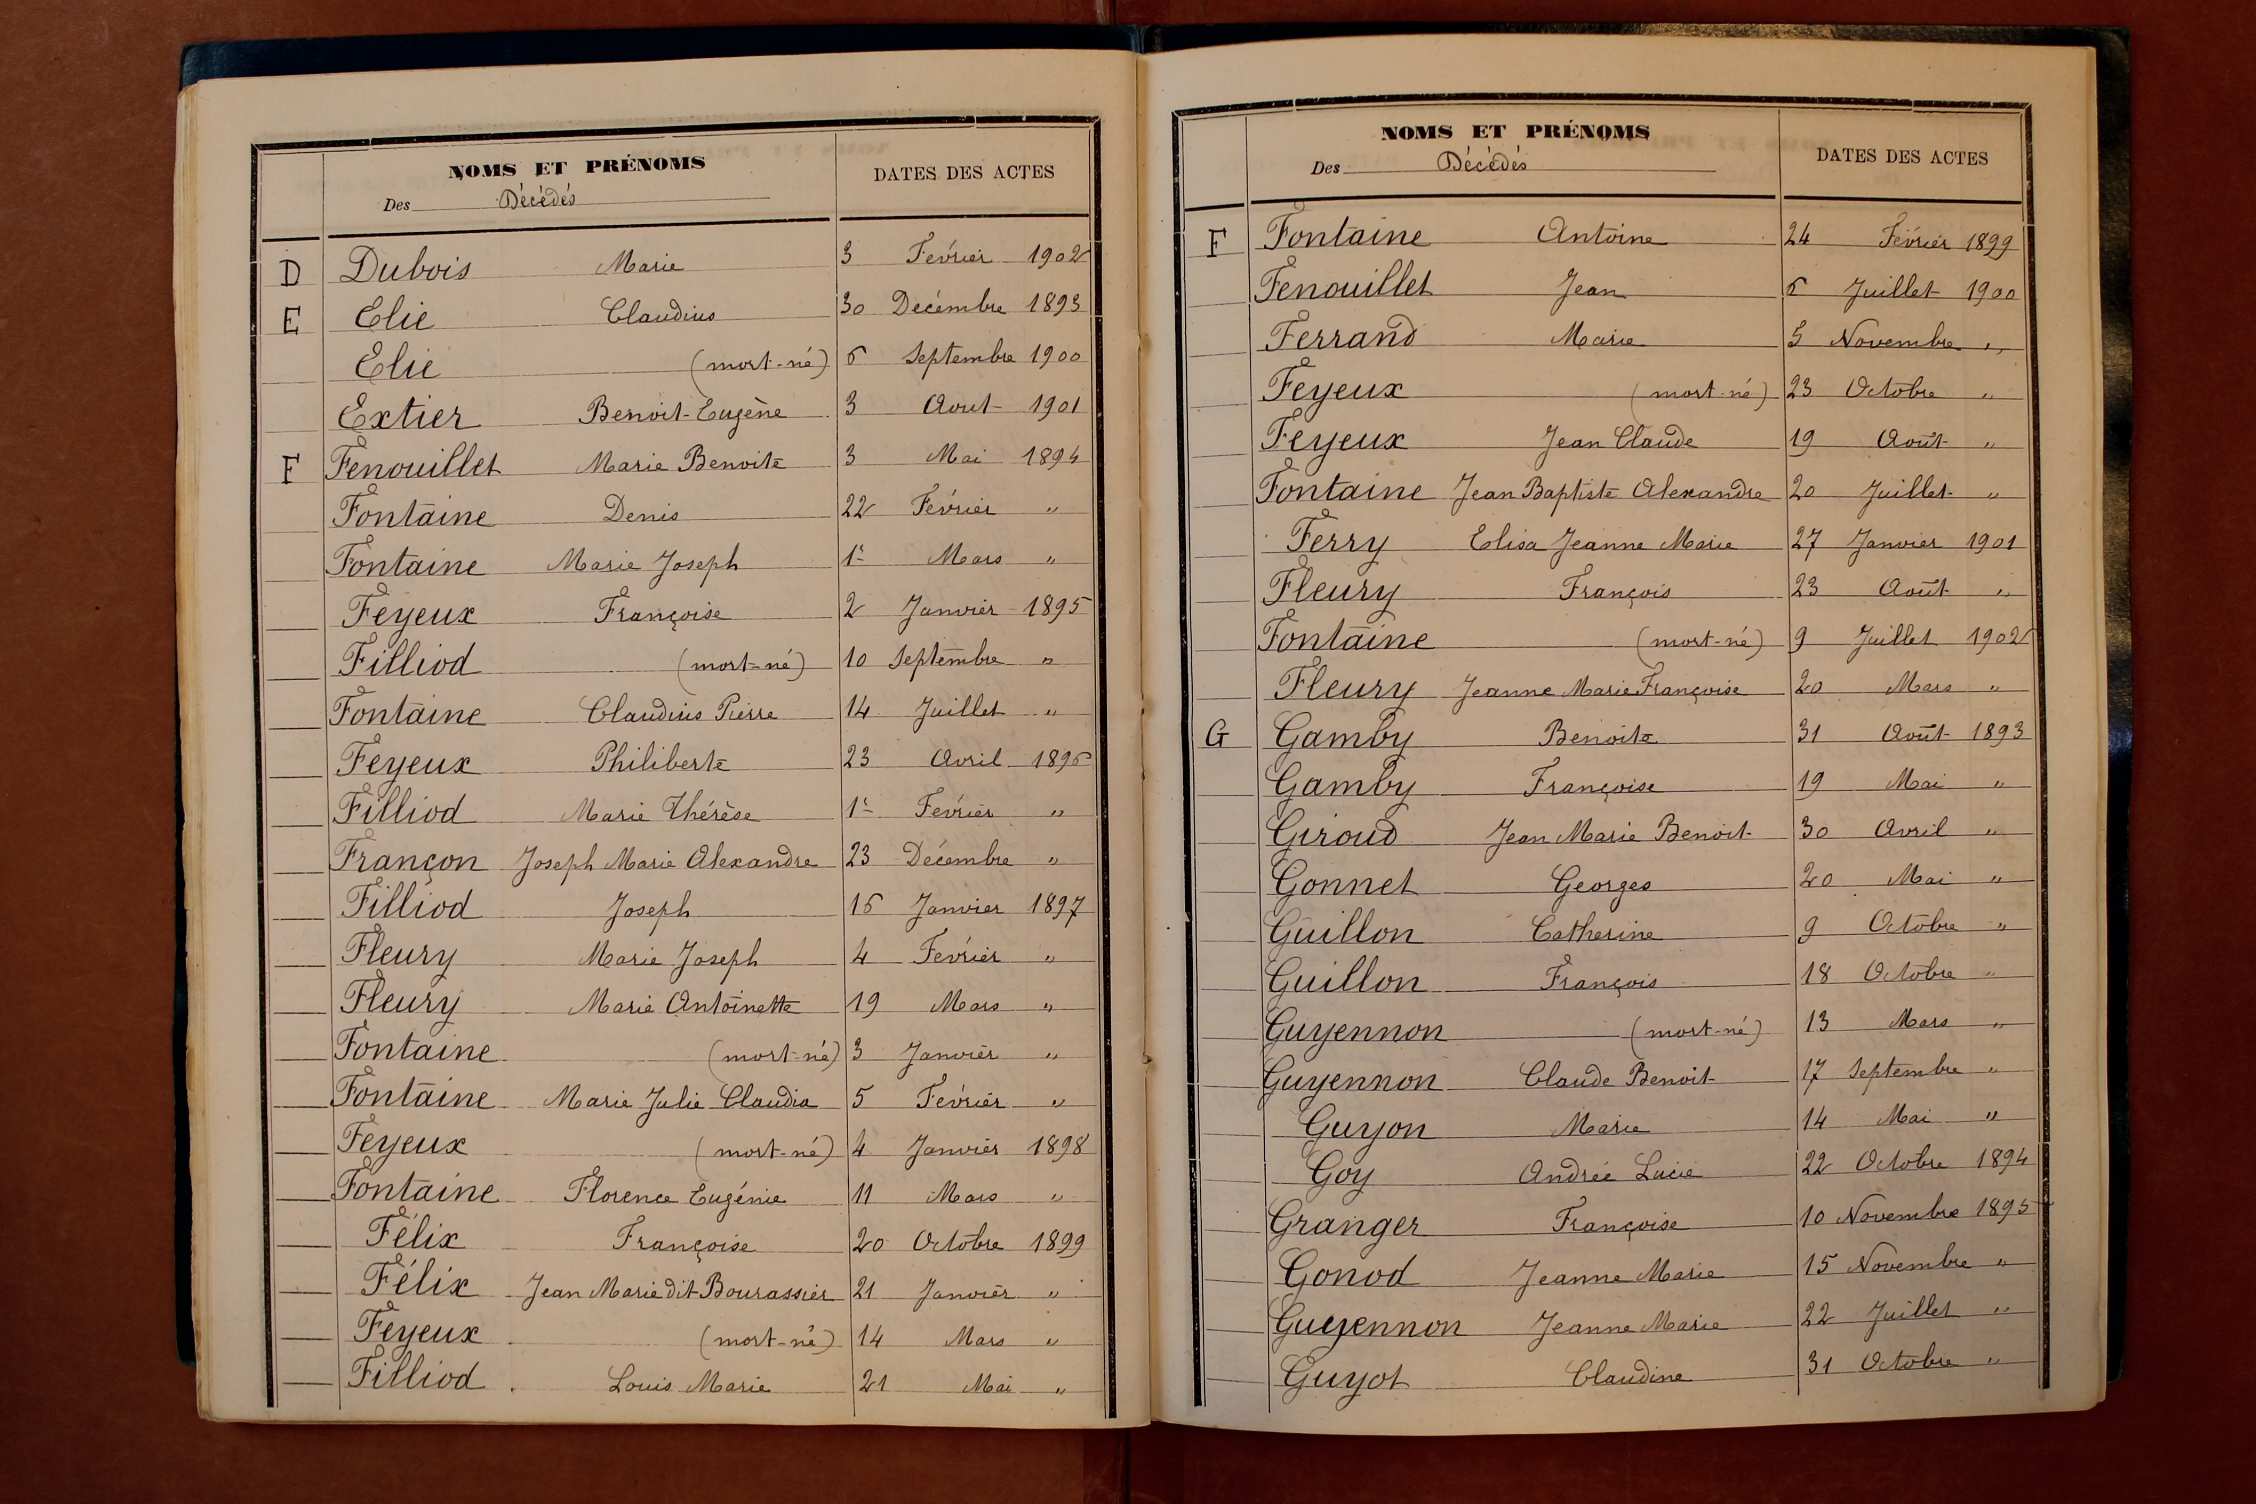 NOMS ET PRÉNOMS
Des Décédés
DATES DES ACTES
D Dubois Marie 3 Février 1902
E Elie Claudius 30 Décembre 1893
Elie (mort-né) 6 Septembre 1900
Extier Benoit-Eugène 3 Aout 1901
F Fenouillet Marie Benoite 3 Mai 1894
Fontaine Denis 22 Février "
Fontaine Marie Joseph 1er Mars "
Feyeux Françoise 2 Janvier 1895
Filliod (mort-né) 10 Septembre "
Fontaine Claudius Pierre 14 Juillet "
Feyeux Philiberte 23 Avril 1896
Filliod Marie Thérèse 1er Février "
Françon Joseph Marie Alexandre 23 Décembre "
Filliod Joseph 16 Janvier 1897
Fleury Marie Joseph 4 Février "
Fleury Marie Antoinette 19 Mars "
Fontaine (mort-né) 3 Janvier "
Fontaine Marie Julie Claudia 5 Février "
Feyeux (mort-né) 4 Janvier 1898
Fontaine Florence Eugénie 11 Mars "
Félix Françoise 20 Octobre 1899
Félix Jean Marie dit Bourassier 21 Janvier "
Feyeux (mort-né) 14 Mars "
Filliod Louis Marie 21 Mai "
NOMS ET PRÉNOMS
Des Décédés
DATES DES ACTES
F Fontaine Antoine 24 Février 1899
Fenouillet Jean 6 Juillet 1900
Ferrand Marie 5 Novembre "
Feyeux (mort-né) 23 Octobre "
Feyeux Jean Claude 19 Août "
Fontaine Jean Baptiste Alexandre 20 Juillet "
Ferry Elisa Jeanne Marie 27 Janvier 1901
Fleury François 23 Août "
Fontaine (mort-né) 9 Juillet 1902
Fleury Jeanne Marie Françoise 20 Mars "
G Gamby Benoite 31 Août 1893
Gamby Françoise 19 Mai "
Giroud Jean Marie Benoit 30 Avril "
Gonnet Georges 20 Mai "
Guillon Catherine 9 Octobre "
Guillon François 18 Octobre "
Guyennon (mort-né) 13 Mars "
Guyennon Claude Benoit 17 Septembre "
Guyon Marie 14 Mai "
Goy Andrée Lucie 22 Octobre 1894
Granger Françoise 10 Novembre 1895
Gonod Jeanne Marie 15 Novembre "
Guyennon Jeanne Marie 22 Juillet "
Guyot Claudine 31 Octobre "